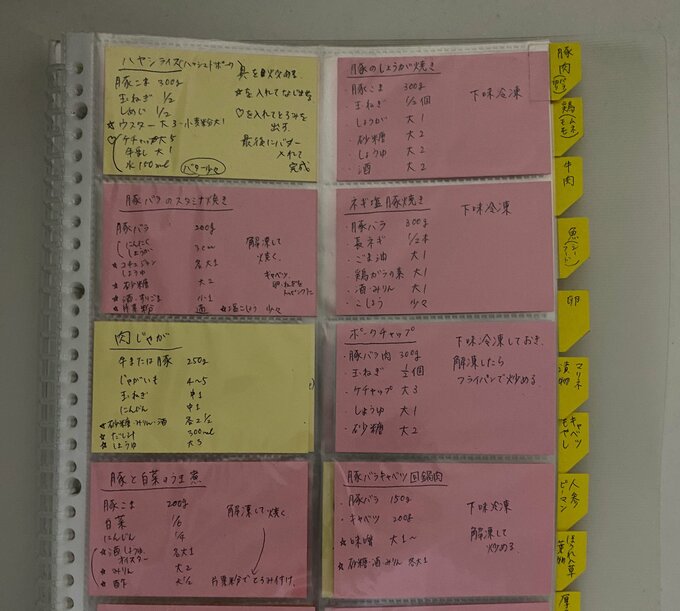 ハヤシライス(ハッシュドポーク)
豚こま 300g
玉ねぎ 1/2
しめじ 1/2
☆ウスター 大3-小麦粉大1
♡ケチャップ大5
牛乳 大1
水 150ml
バター少々
具を炒める
☆を入れてなじませる
♡を入れてとろみを
出す。
最後にバター
入れて
完成
豚のしょうが焼き
豚こま 300g
玉ねぎ 1/2個
しょうが 大1
砂糖 大2
しょうゆ 大2
酒 大2
下味冷凍
豚バラのスタミナ焼き
豚バラ 200g
にんにく
しょうが 3cm
☆コチュジャン
しょうゆ 各大1
☆砂糖 大2
☆酒・すりごま 小1
☆片栗粉 適 ☆塩こしょう 少々
解凍して
焼く。
キャベツ
ネギ塩豚焼き
・豚バラ 300g
・長ネギ 1/2本
・ごま油 大1
・鶏ガラの素 大1
・酒・みりん 大1
・こしょう 少々
下味冷凍
肉じゃが
牛または豚 250g
じゃがいも 4~5
玉ねぎ 中1
にんじん 中1
☆砂糖・みりん・酒 各2 1/2
☆だし汁 300ml
☆しょうゆ 大3
ポークチャップ
・豚バラ肉 300g
・玉ねぎ 1/2個
・ケチャップ 大3
・しょうゆ 大1
・砂糖 大2
下味冷凍しておき、
解凍したら
フライパンで炒める
豚と白菜のうま煮
豚こま 200g
白菜 1/6
にんじん 1/4
☆酒しょうゆ
オイスター 各大1
☆みりん 大2
☆酢 大1/2
解凍して焼く
片栗粉でとろみ付け。
豚バラキャベツ回鍋肉
・豚バラ 150g
・キャベツ 200g
☆味噌 大1~
☆砂糖・酒・みりん 各大1
下味冷凍
解凍して
炒める
豚肉
鶏(ムネモモ)
牛肉
魚(シーフード)
卵
マリネ
漬物
キャベツ
もやし
人参
ピーマン
ほうれん草
葉物
厚